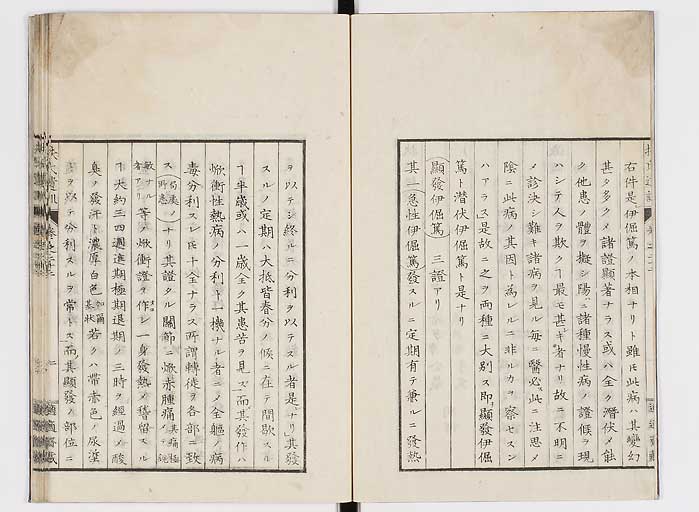 右件是伊倔篤ノ本相ナリト雖𪜈此病ハ其變幻
甚タ多クメ諸證顯著ナラス或ハ全ク潛伏メ能
ク他患ノ體ヲ擬シ陽ニ諸種慢性病ノ證候ヲ現
ハシテ人ヲ欺クヿ最モ甚キ者ナリ故ニ不明ニ
メ診決シ難キ諸病ヲ見ル毎ニ醫必ス此ニ注思メ
陰ニ此病ノ其因ト為レルニ非ルカヲ察セスン
ハアラス是故ニ之ヲ両種ニ大別ス即顯發伊倔
篤ト潛伏伊倔篤ト是ナリ
顯發伊倔篤 三證アリ
其一急性伊倔篤發スルニ定期有テ兼ルニ發熱
ヲ以テシ終ルニ分利ヲ以テスル者是ナリ其發
スルノ定期ハ大抵皆春分ノ候ニ在テ間歇スル
ヿ半歳或ハ一歳全ク其患苦ヲ見ス而其發作ハ
焮衝性熱病ノ分利ト一機ナル者ニメ全軀ノ病
毒分利スレ𪜈十全ナラス所謂轉徙ヲ各部ニ致
ス ナリ其證タル關節ニ焮赤腫痛
等ノ焮衝證ヲ作シ一身發熱メ稽留スル
ヿ大約三四週進期極期退期ノ三時ヲ經過メ酸
臭ノ發汗ト濃厚白色 若クハ帶赤色ノ尿渣
ヲ以テ分利スルヲ常トス而其顯發ノ部位ニ